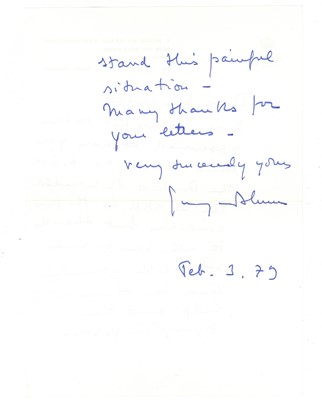 stand this painful
situation -
Many thanks for
your letters -
very sincerely yours
Feb. 3. 79